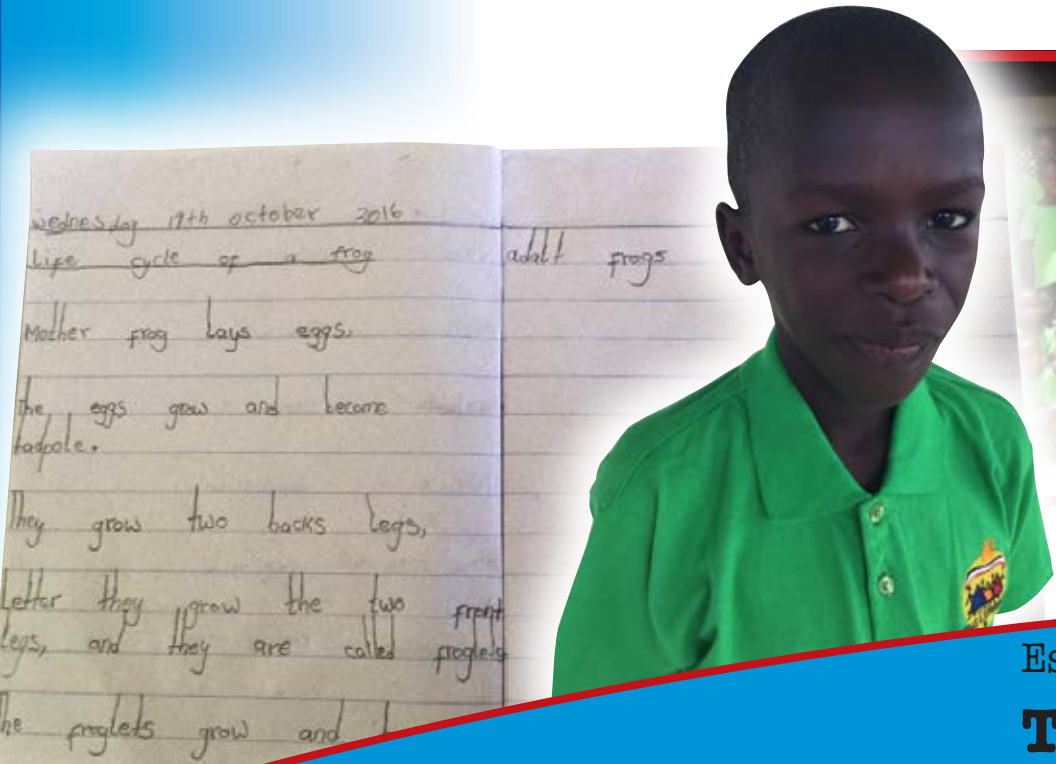 wednesday 19th october 2016
Life cycle of a frog
Mother frog lays eggs.
The eggs grow and become
tadpole.
They grow two backs legs,
Letter they grow the two front
legs, and they are called froglets
The froglets grow and
adalt frogs
Es
T